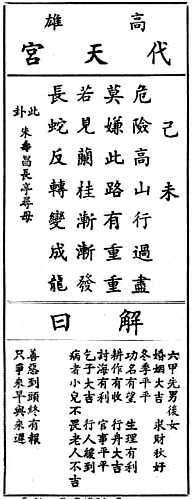 高雄
代天宮
己未
危險高山行過盡
莫嫌此路有重重
若見蘭桂漸漸發
長蛇反轉變成龍
此卦 朱壽昌長亭尋母
解曰
六甲先男後女
婚姻大吉 求財秋好
冬季平平
功名有望 生理有利
耕作有收 行舟大吉
討海有利 官事平平
乞子大吉 行人緩到
病者小兒不畏老人不吉
善惡到頭終有報
只爭來早與來遲